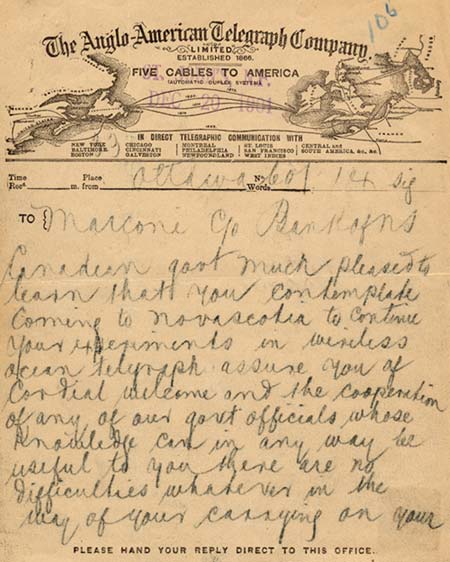 106
The Anglo-American Telegraph Company,
LIMITED.
ESTABLISHED 1866.
FIVE CABLES TO AMERICA
(AUTOMATIC DUPLEX SYSTEM)
DEC 20 1901
IN DIRECT TELEGRAPHIC COMMUNICATION WITH
NEW YORK CHICAGO MONTREAL ST. LOUIS CENTRAL and
BALTIMORE. CINCINNATI PHILADELPHIA SAN FRANCISCO SOUTH AMERICA, &c, &c.
BOSTON GALVESTON NEWFOUNDLAND WEST INDIES
Time Place No
Recd m. from Ottawa Words 14 Sig
TO Marconi c/o Bank of NS
Canadian govt much pleased to
learn that you contemplate
coming to novascotia to continue
your experiments in wireless
ocean telegraph assure you of
cordial welcome and the cooperation
of any of our govt officials whose
knowledge can in any way be
useful to you there are no
difficulties whatever in the
way of your carrying on your
PLEASE HAND YOUR REPLY DIRECT TO THIS OFFICE.